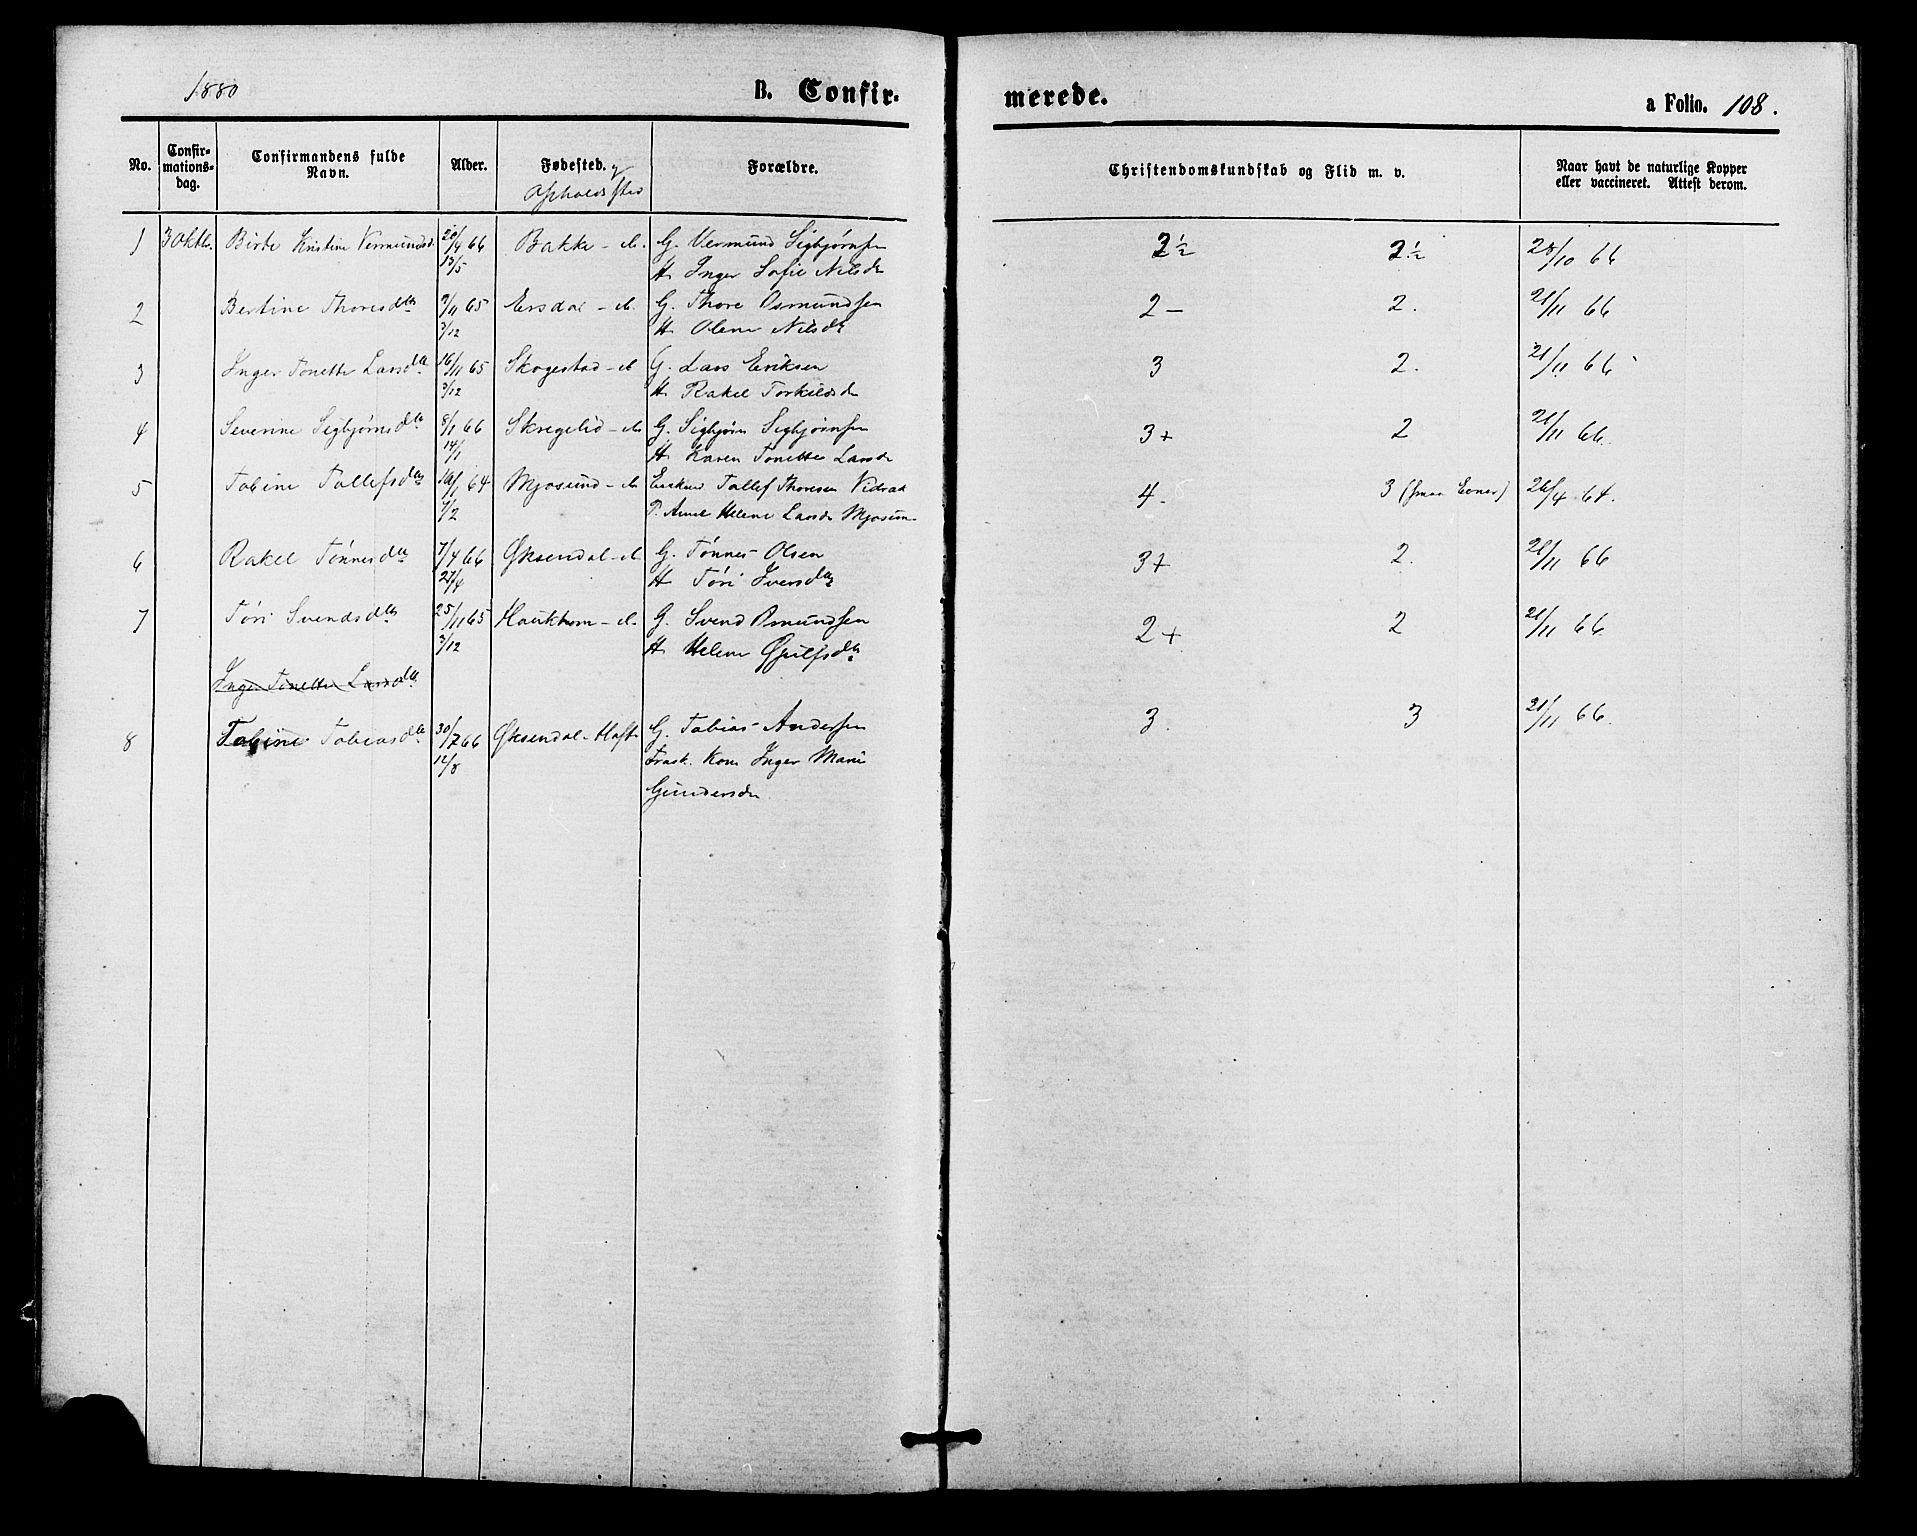 1880
B. Confir-
merede.
a Folio. 108.
No.
Confir-
mations-
dag.
Confirmandens fulde
Navn.
Alder.
Fødested. og
Opholdssted
Forældre.
Christendomskundskab og Flid m. v.
Naar havt de naturlige Kopper
eller vaccineret. Attest derom.
1 3 Oktb. Birte Kristine Vermundsd. 20/4 66 Bakke - G. Vermund Sigbjørnsen 2½ 2½ 28/10 66
13/5 H. Inger Sofie Nilsdr
2 Bertine Thoresdtr 9/11 65 Ersdal - G. Thore Osmundsen 2- 2. 21/11 66
3/12 H. Olene Nilsdr
3 Inger Tonette Larsdtr 16/11 65 Skogestad - G. Lars Eriksen 3 2. 21/11 66
3/12 H. Rakel Torkildsd
4 Severine Sigbjørnsdtr 8/1 66 Skregelid - G. Sigbjørn Sigbjørnsen 3+ 2 21/11 66.
14/1 H. Karen Tonette Larsdr
5 Tobine Tallefsdtr 10/1 64 Mjosund - Enkem Tallef Thoresen Vidrak 4- 3 (smaa Evner) 26/4 64.
7/2 P. Anne Helene Larsdr Mjosun
6 Rakel Tønnesdtr 7/4 66 Øksendal - G. Tønnes Olsen 3+ 2. 21/11 66
27/4 H. Tøri Iversdtr
7 Tøri Svendsdtr 25/11 65 Haukhom - G. Svend Osmundsen 2+ 2 21/11 66.
3/12 H. Helene Øiulfsdtr
Inger Tonette Larsdtr
8 Tobine Tobiasdtr 30/7 66 Øksendal - Haft G. Tobias Andersen 3. 3 21/11 66.
12/8 Frask. Kone Inger Marie
Gundersdr